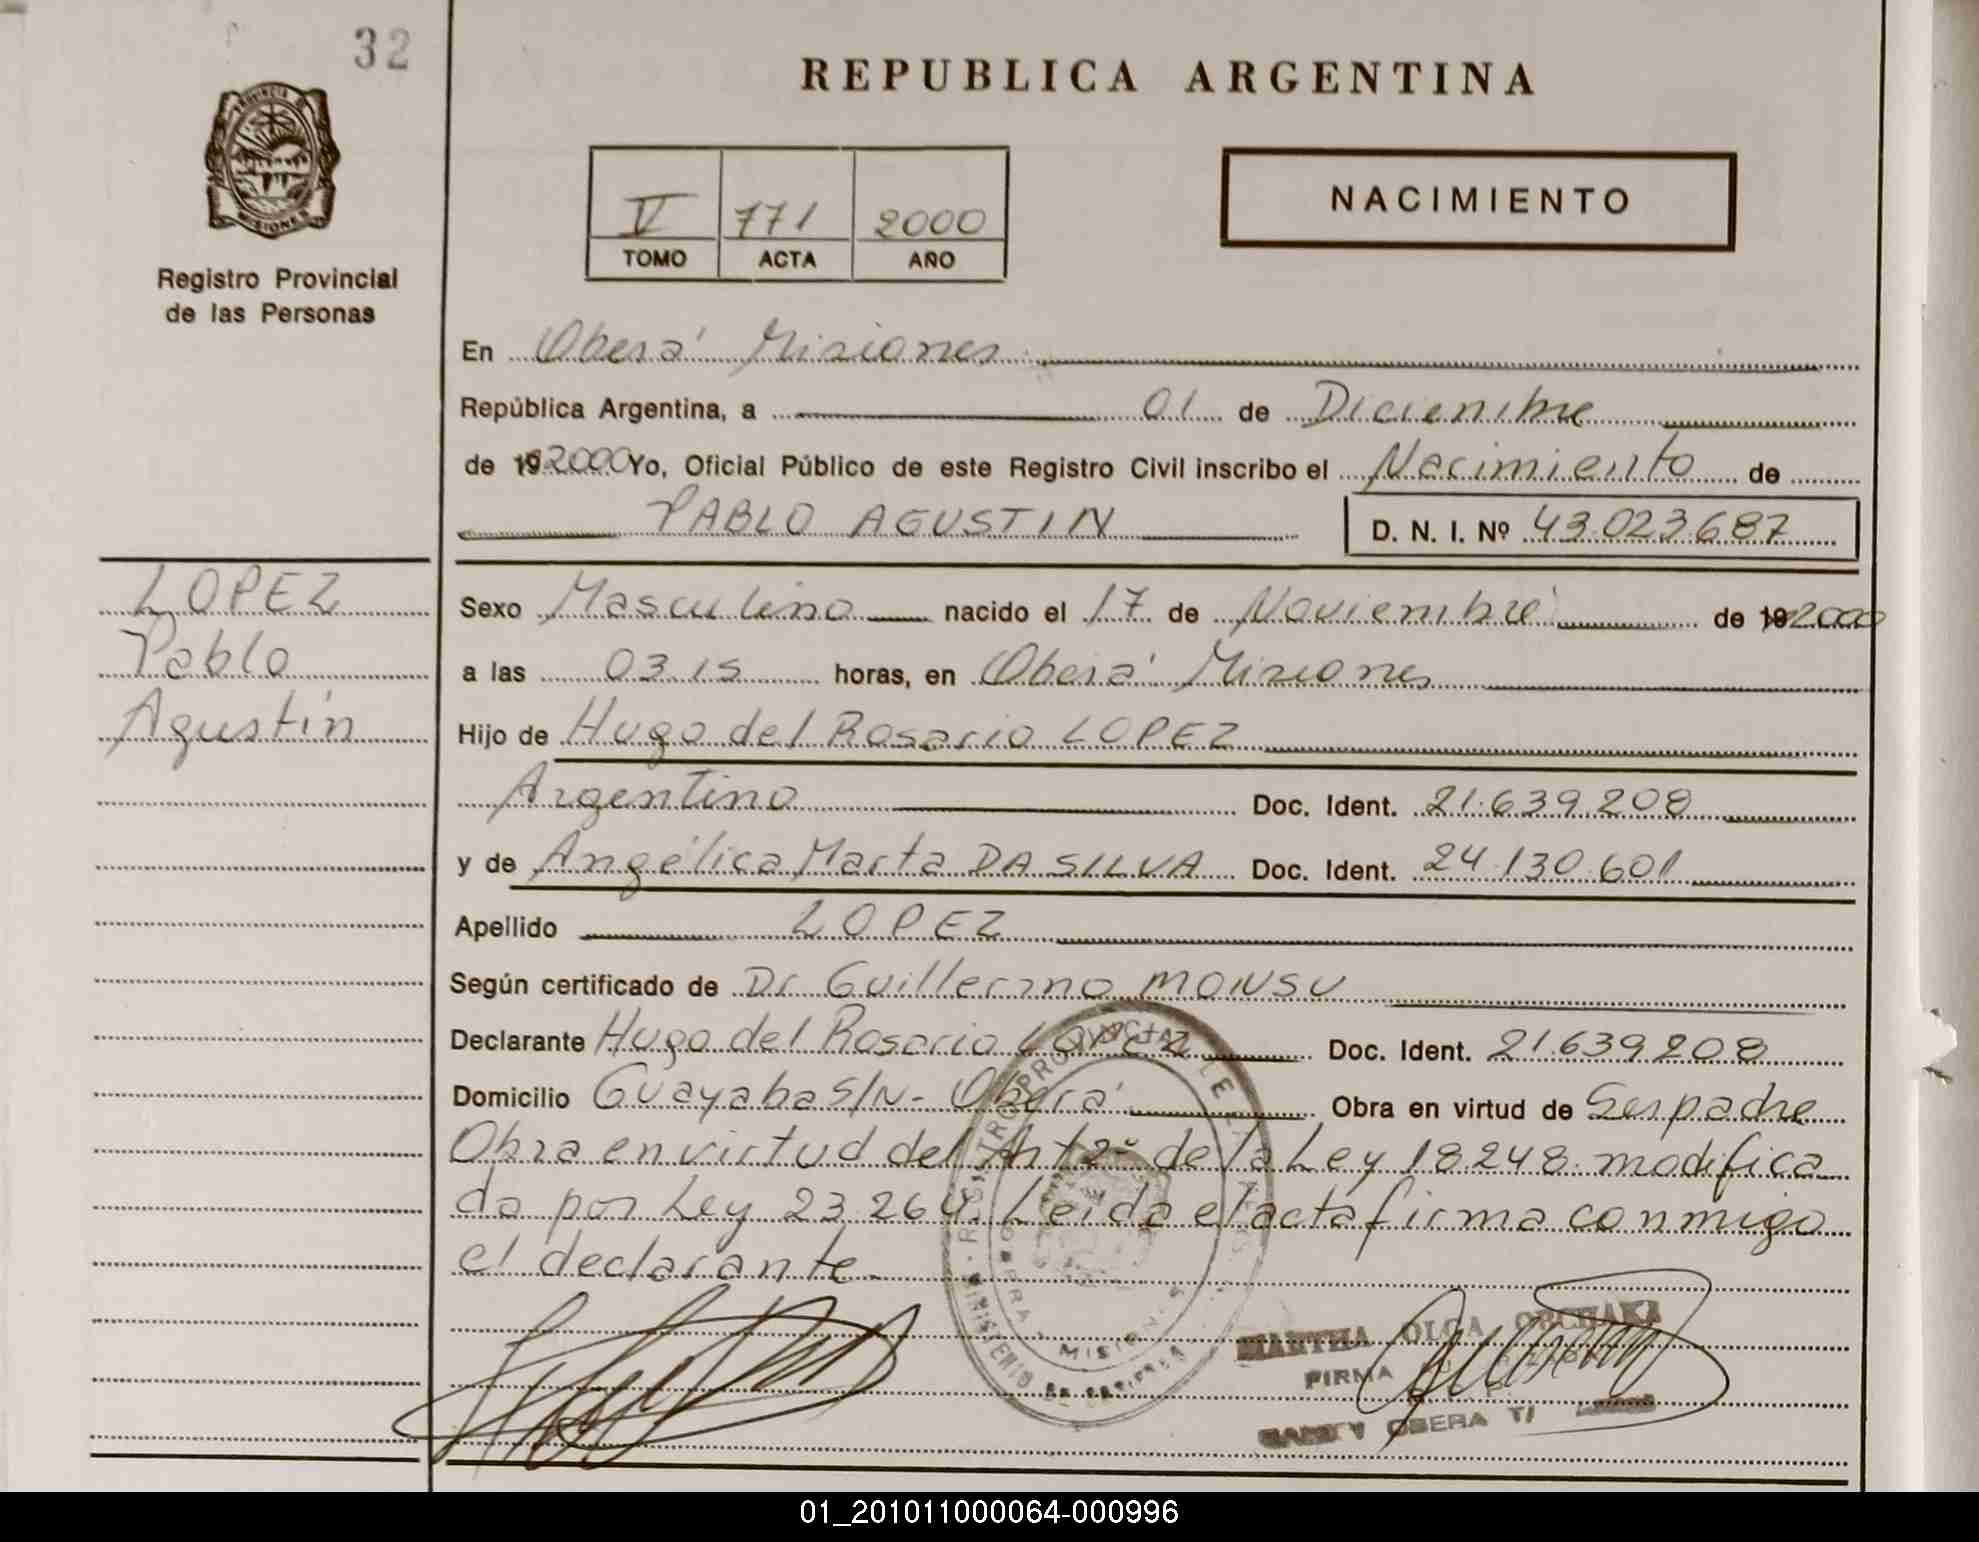 32
REPUBLICA ARGENTINA
PROVINCIA D
MISIONES
Registro Provincial
de las Personas
V 771 2000
TOMO ACTA AÑO
NACIMIENTO
En Oberá Misiones
República Argentina, a 01 de Diciembre
de 19 2000 Yo, Oficial Público de este Registro Civil inscribo el Nacimiento de
PABLO AGUSTIN D. N. I. Nº 43.023.687
LOPEZ
Pablo
Agustín
Sexo Masculino nacido el 17 de Noviembre de 19 2000
a las 03.15 horas, en Oberá Misiones
Hijo de Hugo del Rosario LOPEZ
Argentino Doc. Ident. 21.639.208
y de Angélica Marta DA SILVA Doc. Ident. 24.130.601
Apellido LOPEZ
Según certificado de Dr Guillermo MONSU
Declarante Hugo del Rosario LOPEZ Doc. Ident. 21.639.208
Domicilio Guayaba S/N - Oberá Obra en virtud de Ser padre
Obra en virtud del Art 2º de la Ley 18.248 modifica
da por Ley 23.264. Leida el acta firma conmigo
el declarante.
REGISTRO PROVINCIAL DE LAS
MINISTERIO DE
MISIONES
MARTHA OLGA
FIRMA
OBERA
01_201011000064-000996